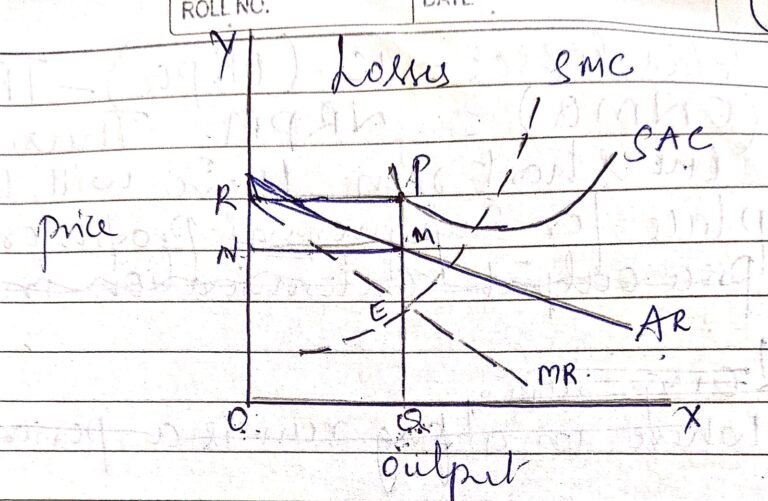 ROLL NO.
DATE
Y
Losses
SMC
SAC
P
R
price
M
N
E
AR
MR.
O
Q
X
output